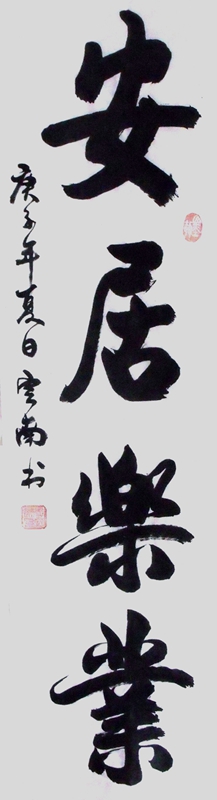 安居樂業
庚子年夏日雲南书